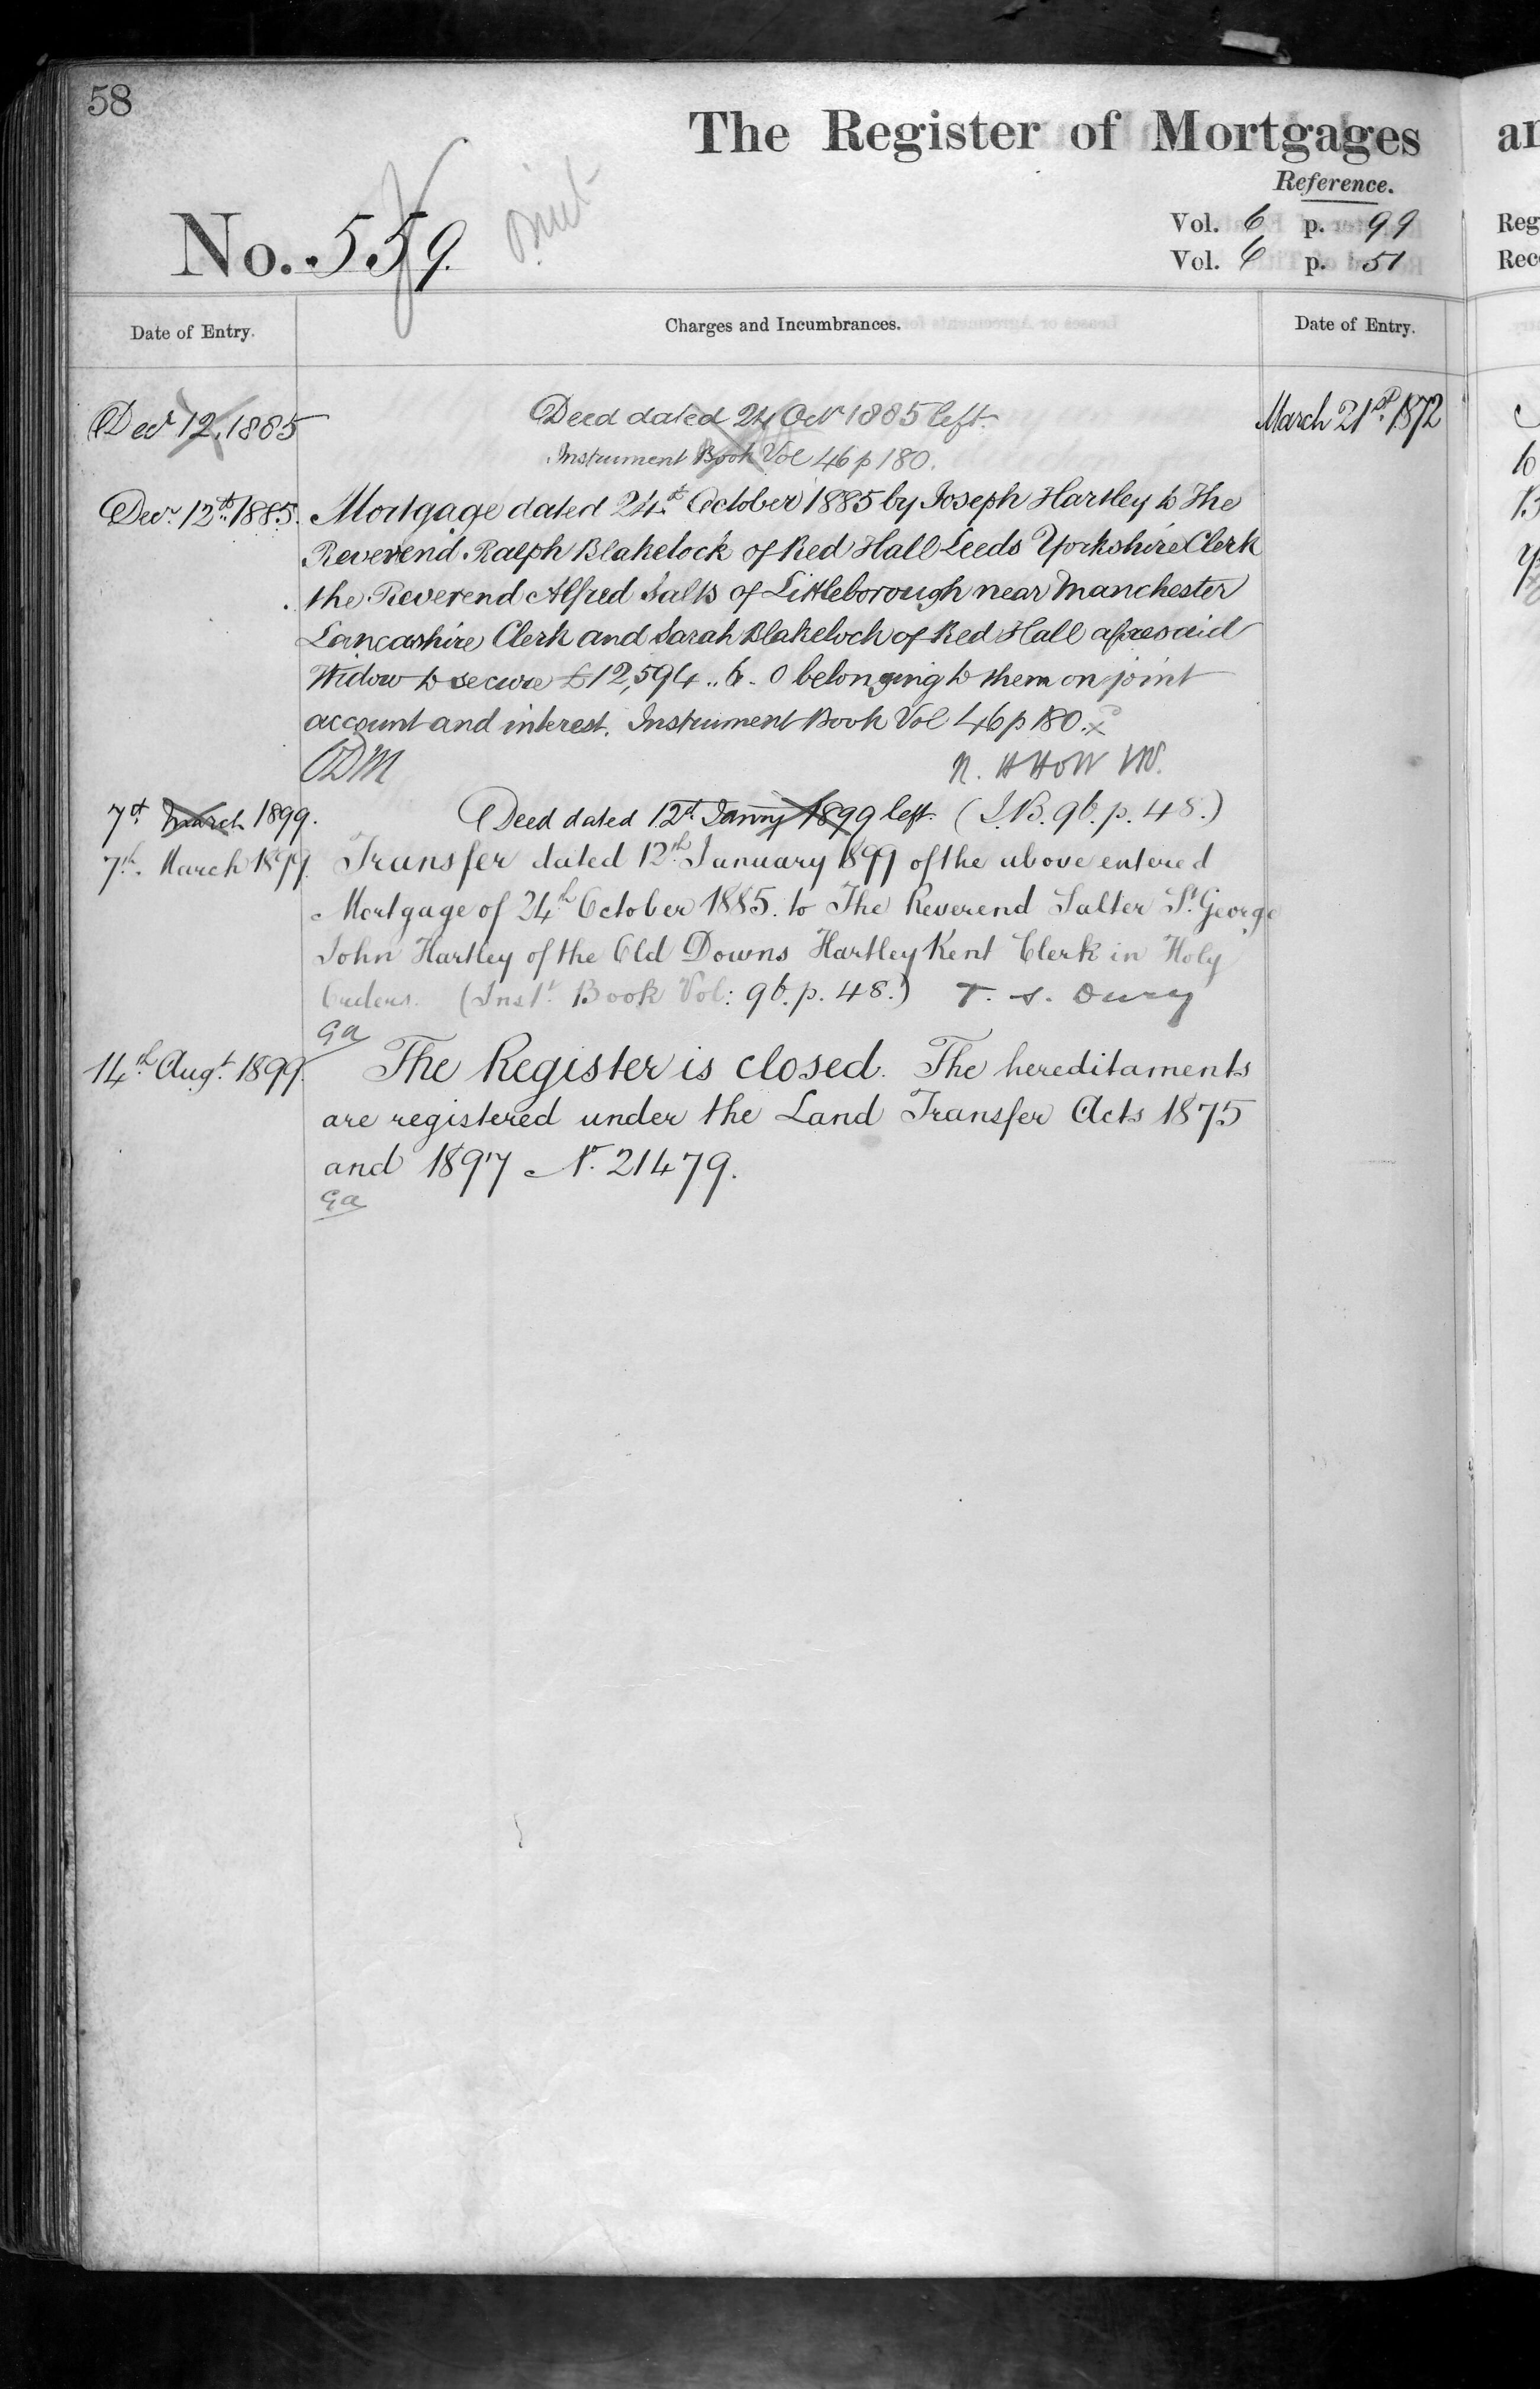 58
The Register of Mortgages
Reference.
No. 559.
Vol. 6 p. 99
Vol. 6 p. 51
Date of Entry.
Charges and Incumbrances.
Date of Entry.
Decr 12, 1885
Deed dated 24 Octr 1885 left.
March 21st 1872
Instrument Book Vol 46 p 180.
Decr. 12th 1885.
Mortgage dated 24th October 1885 by Joseph Hartley to The
Reverend Ralph Blakelock of Red Hall Leeds Yorkshire Clerk
the Reverend Alfred Salts of Littleborough near Manchester
Lancashire Clerk and Sarah Blakelock of Red Hall aforesaid
Widow to secure £12,594..6.0 belonging to them on joint
account and interest. Instrument Book Vol 46 p 180.
ODM
7th March 1899.
Deed dated 12th Janry 1899 left. (I.B. 96. p. 48.)
7th March 1899.
Transfer dated 12th January 1899 of the above entered
Mortgage of 24th October 1885. to The Reverend Salter St George
John Hartley of the Old Downs Hartley Kent Clerk in Holy
Orders. (Inst. Book Vol: 96. p. 48.) T. S. Dury
GA
14th Augt. 1899.
The Register is closed. The hereditaments
are registered under the Land Transfer Acts 1875
and 1897 No. 21479.
GA